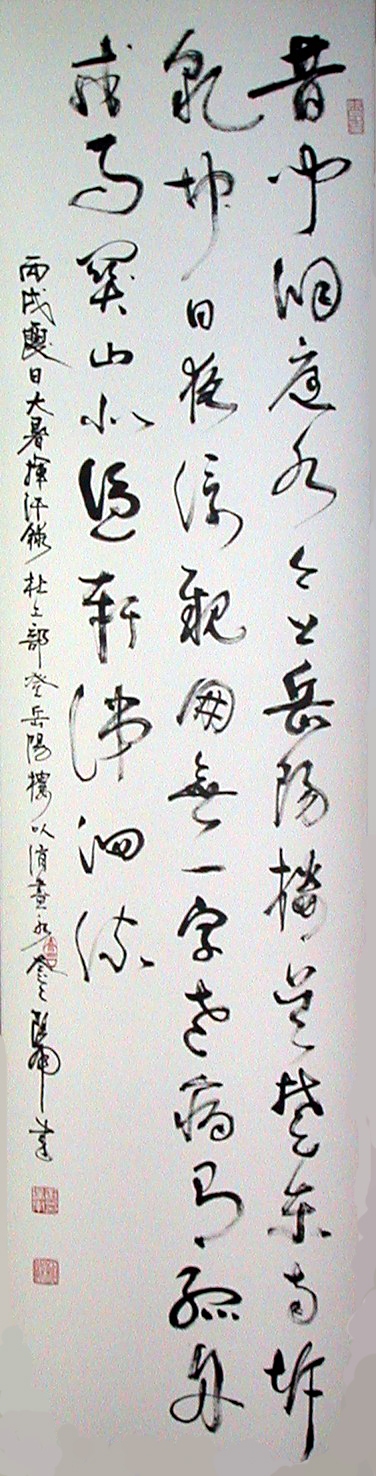 昔聞洞庭水今上岳陽樓吳楚東南坼
乾坤日夜浮親朋無一字老病有孤舟
戎馬關山北憑軒涕泗流
丙戌夏日大暑揮汗錄杜工部登岳陽樓以消晝永